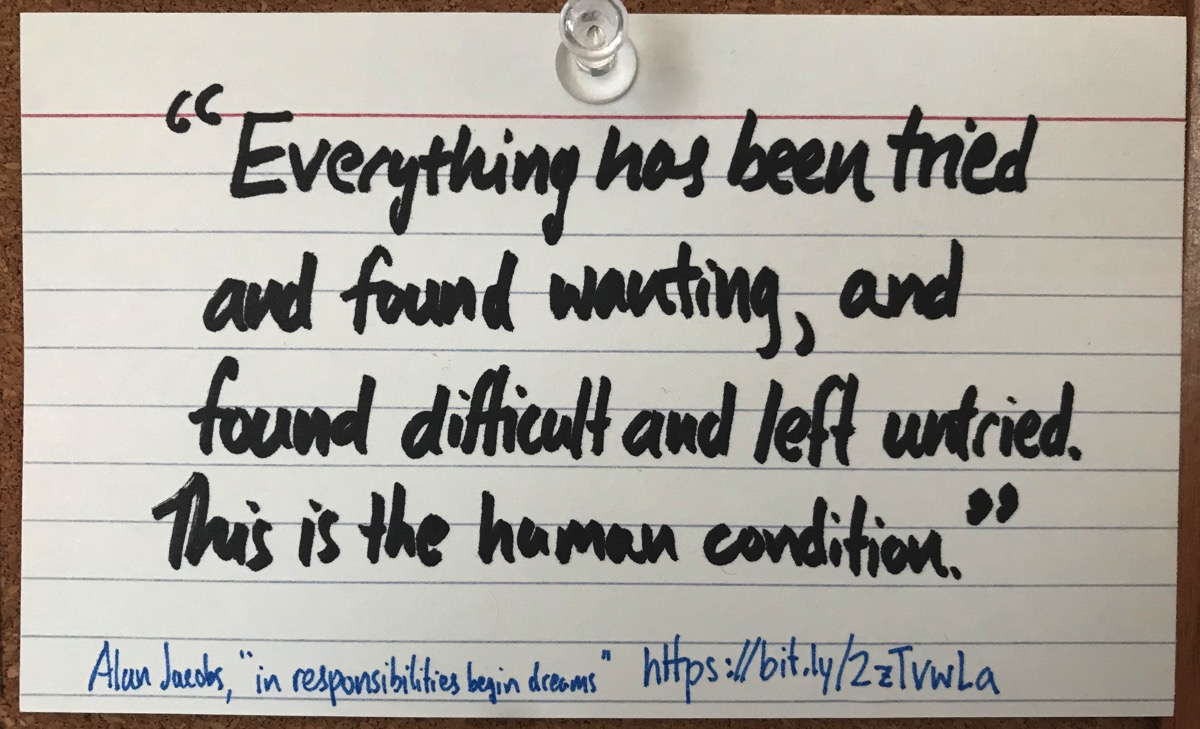 “Everything has been tried
and found wanting, and
found difficult and left untried.
This is the human condition.”
Alan Jacobs, "in responsibilities begin dreams" https://bit.ly/2zTvwLa